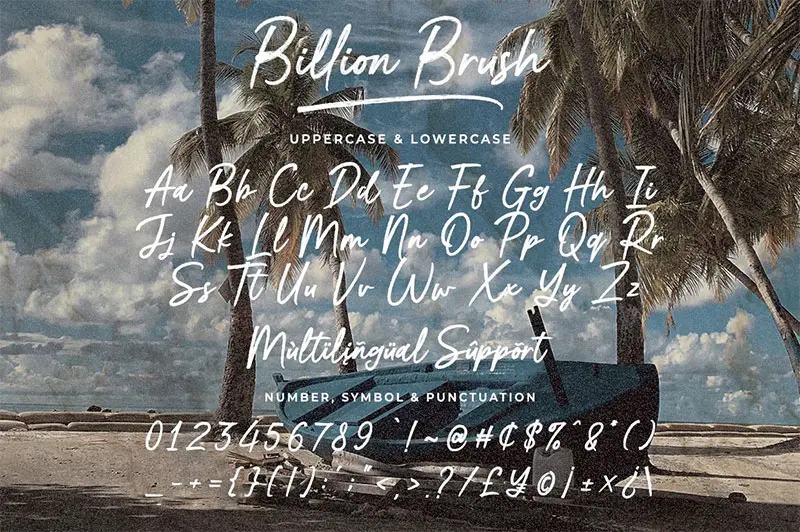 Billion Brush
UPPERCASE & LOWERCASE
Aa Bb Cc Dd Ee Ff Gg Hh Ii
Jj Kk Ll Mm Nn Oo Pp Qq Rr
Ss Tt Uu Vv Ww Xx Yy Zz
Mùltïlįñgüal Sûppõrt
NUMBER, SYMBOL & PUNCTUATION
0123456789 `!~@#¢$%^&*()
_-+={}[|]:';"<,>.?/£¥©¡±×¿\